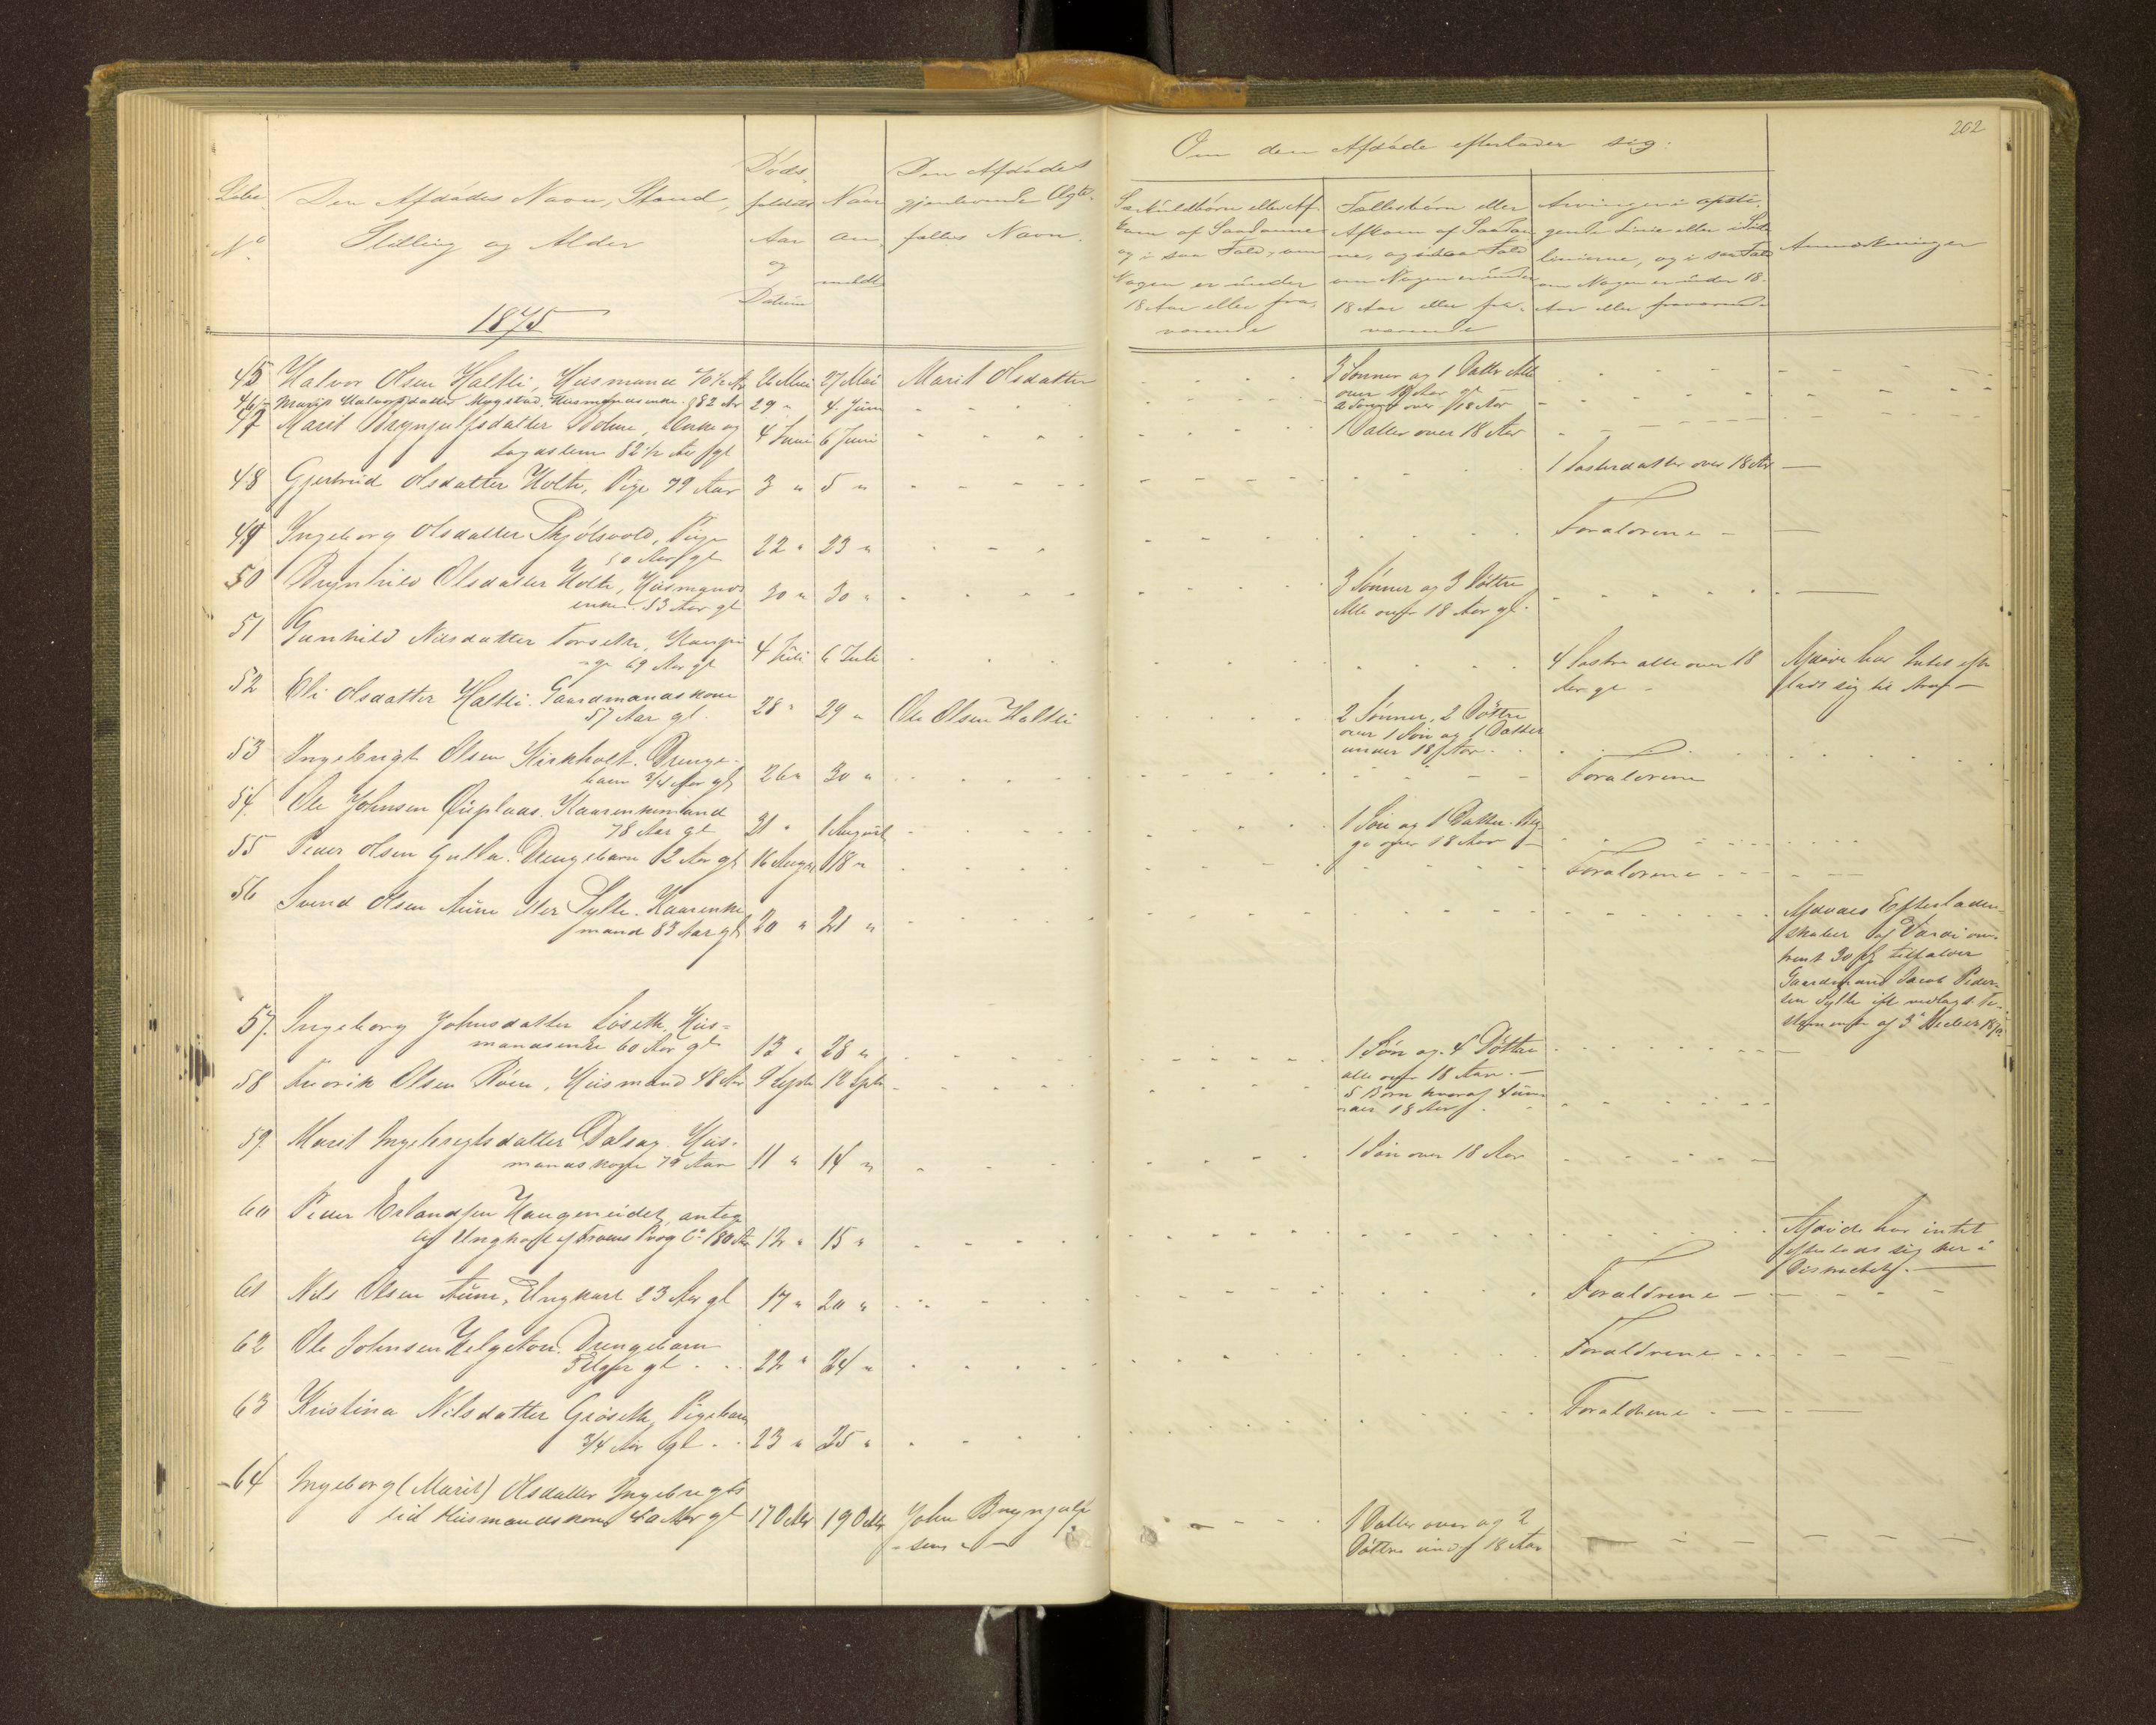 202
Om den Afdöde efterlader sig:
Löbe No
Den Afdödes Navn, Stand, Stilling og Alder
Döds faldets Aar og Datum
Naar anmeldt
Den Afdödes gjenlevende Ægtefælles Navn.
Særkuldbörn eller Afkom af Saadanne og i saa Fald, om Nogen er under 18 Aar eller fraværende
Fællesbörn eller Afkom af Saadanne, og i saa Fald om Nogen er under 18 Aar eller fraværende
Arvinger i opstigende Linie eller i Sidelinierne, og i saa Fald om Nogen er under 18 Aar eller fraværende
Anmærkninger
1875
45 Halvor Olsen Haltli, Husmand 70½ Aar 26 Mai 27 Mai Marit Olsdatter
3 Sönner og 1 Datter Alle over 18 Aar gl
46 Marit Halvorsdatter Mogstad, Husmandsenke 82 Aar 29 " 4. Juni
2 Sönner over 18 Aar
47 Marit Brynjulfsdatter Bolme, Enke og
Lægdslem 82½ Aar gl 4 Juni 6 Juni
1 Datter over 18 Aar
48 Gjertrud Olsdatter Holte, Pige 79 Aar 3 " 5 "
1 Søsterdatter over 18 Aar
49 Ingeborg Olsdatter Skjölsvold, Pige
Aar gl 22 " 23 "
Forældrene
50 Brynhild Olsdatter Holte, Husmands
enke 53 Aar gl 30 " 30 "
3 Sönner og 3 Döttre
Alle over 18 Aar gl.
51 Gunhild Nilsdatter Torseth, Kaarpi
ge 69 Aar gl 4 Juli 6 Juli
4 Søstre alle over 18
Aar gl
Afdöde har Intet efter
ladt sig til Arv
52 Eli Olsdatter Haltli Gaardmandskone
57 Aar gl. 28 " 29 " Ole Olsen Haltli
2 Sönner, 2 Döttre
over 1 Sön og 1 Datter
under 18 Aar
53 Ingebrigt Olsen Kirkholt. Drenge
barn 3/4 Aar gl 26 " 30 "
Forældrene
54. Ole Johnsen Öieplads. Kaarenkemand
78 Aar gl 31 " 1 August
1 Sön og 1 Datter. Beg
ge over 18 Aar
55 Peder Olsen Gulla. Drengebarn 12 Aar gl 16 August 18 "
Forældrene
56 Svend Olsen Aune eller Sylte. Kaarenke
mand 83 Aar gl 20 " 21 "
Afdödes Efterladen
skaber af Værdi om
trent 30 Spd tilfalder
Gaardmand Jacob Peder
sen Sylte ifl vedlagt Te
stamente af 3
57. Ingeborg Johnsdatter Löseth, Hus=
mandsenke 60 Aar gl 13 " 28 "
1 Sön og 4 Döttre
alle over 18 Aar.
58 Fredrik Olsen Röen, Husmand 48 Aar 9 Septr 12 Septr
5 Börn hvoraf 4 un
der 18 Aar
59. Marit Ingebregtsdatter Dalsæg Hus-
mandskone 79 Aar 11 " 14 "
1 Sön over 18 Aar
60 Peder Erlandsen Haugeneidet, antag
lig Ungkarl 12 " 15 "
Afdöde har intet
efterladt sig her i
Distriktet.
61 Nils Olsen Aune, Ungkarl 23 Aar gl 17 " 20 "
Forældrene
62 Ole Johnsen Helgetun. Drengebarn
5 Uger gl 22 " 24 "
Forældrene
63 Kristina Nilsdatter Gröseth, Pigebarn
3/4 Aar gl 23 " 25 "
Forældrene
64 Ingeborg (Marit) Olsdatter Ingebregts
lid Husmandskone 40 Aar gl 17 Octbr 19 Octbr John Brynjulf
sen
1 Datter over og 2
Döttre under 18 Aar